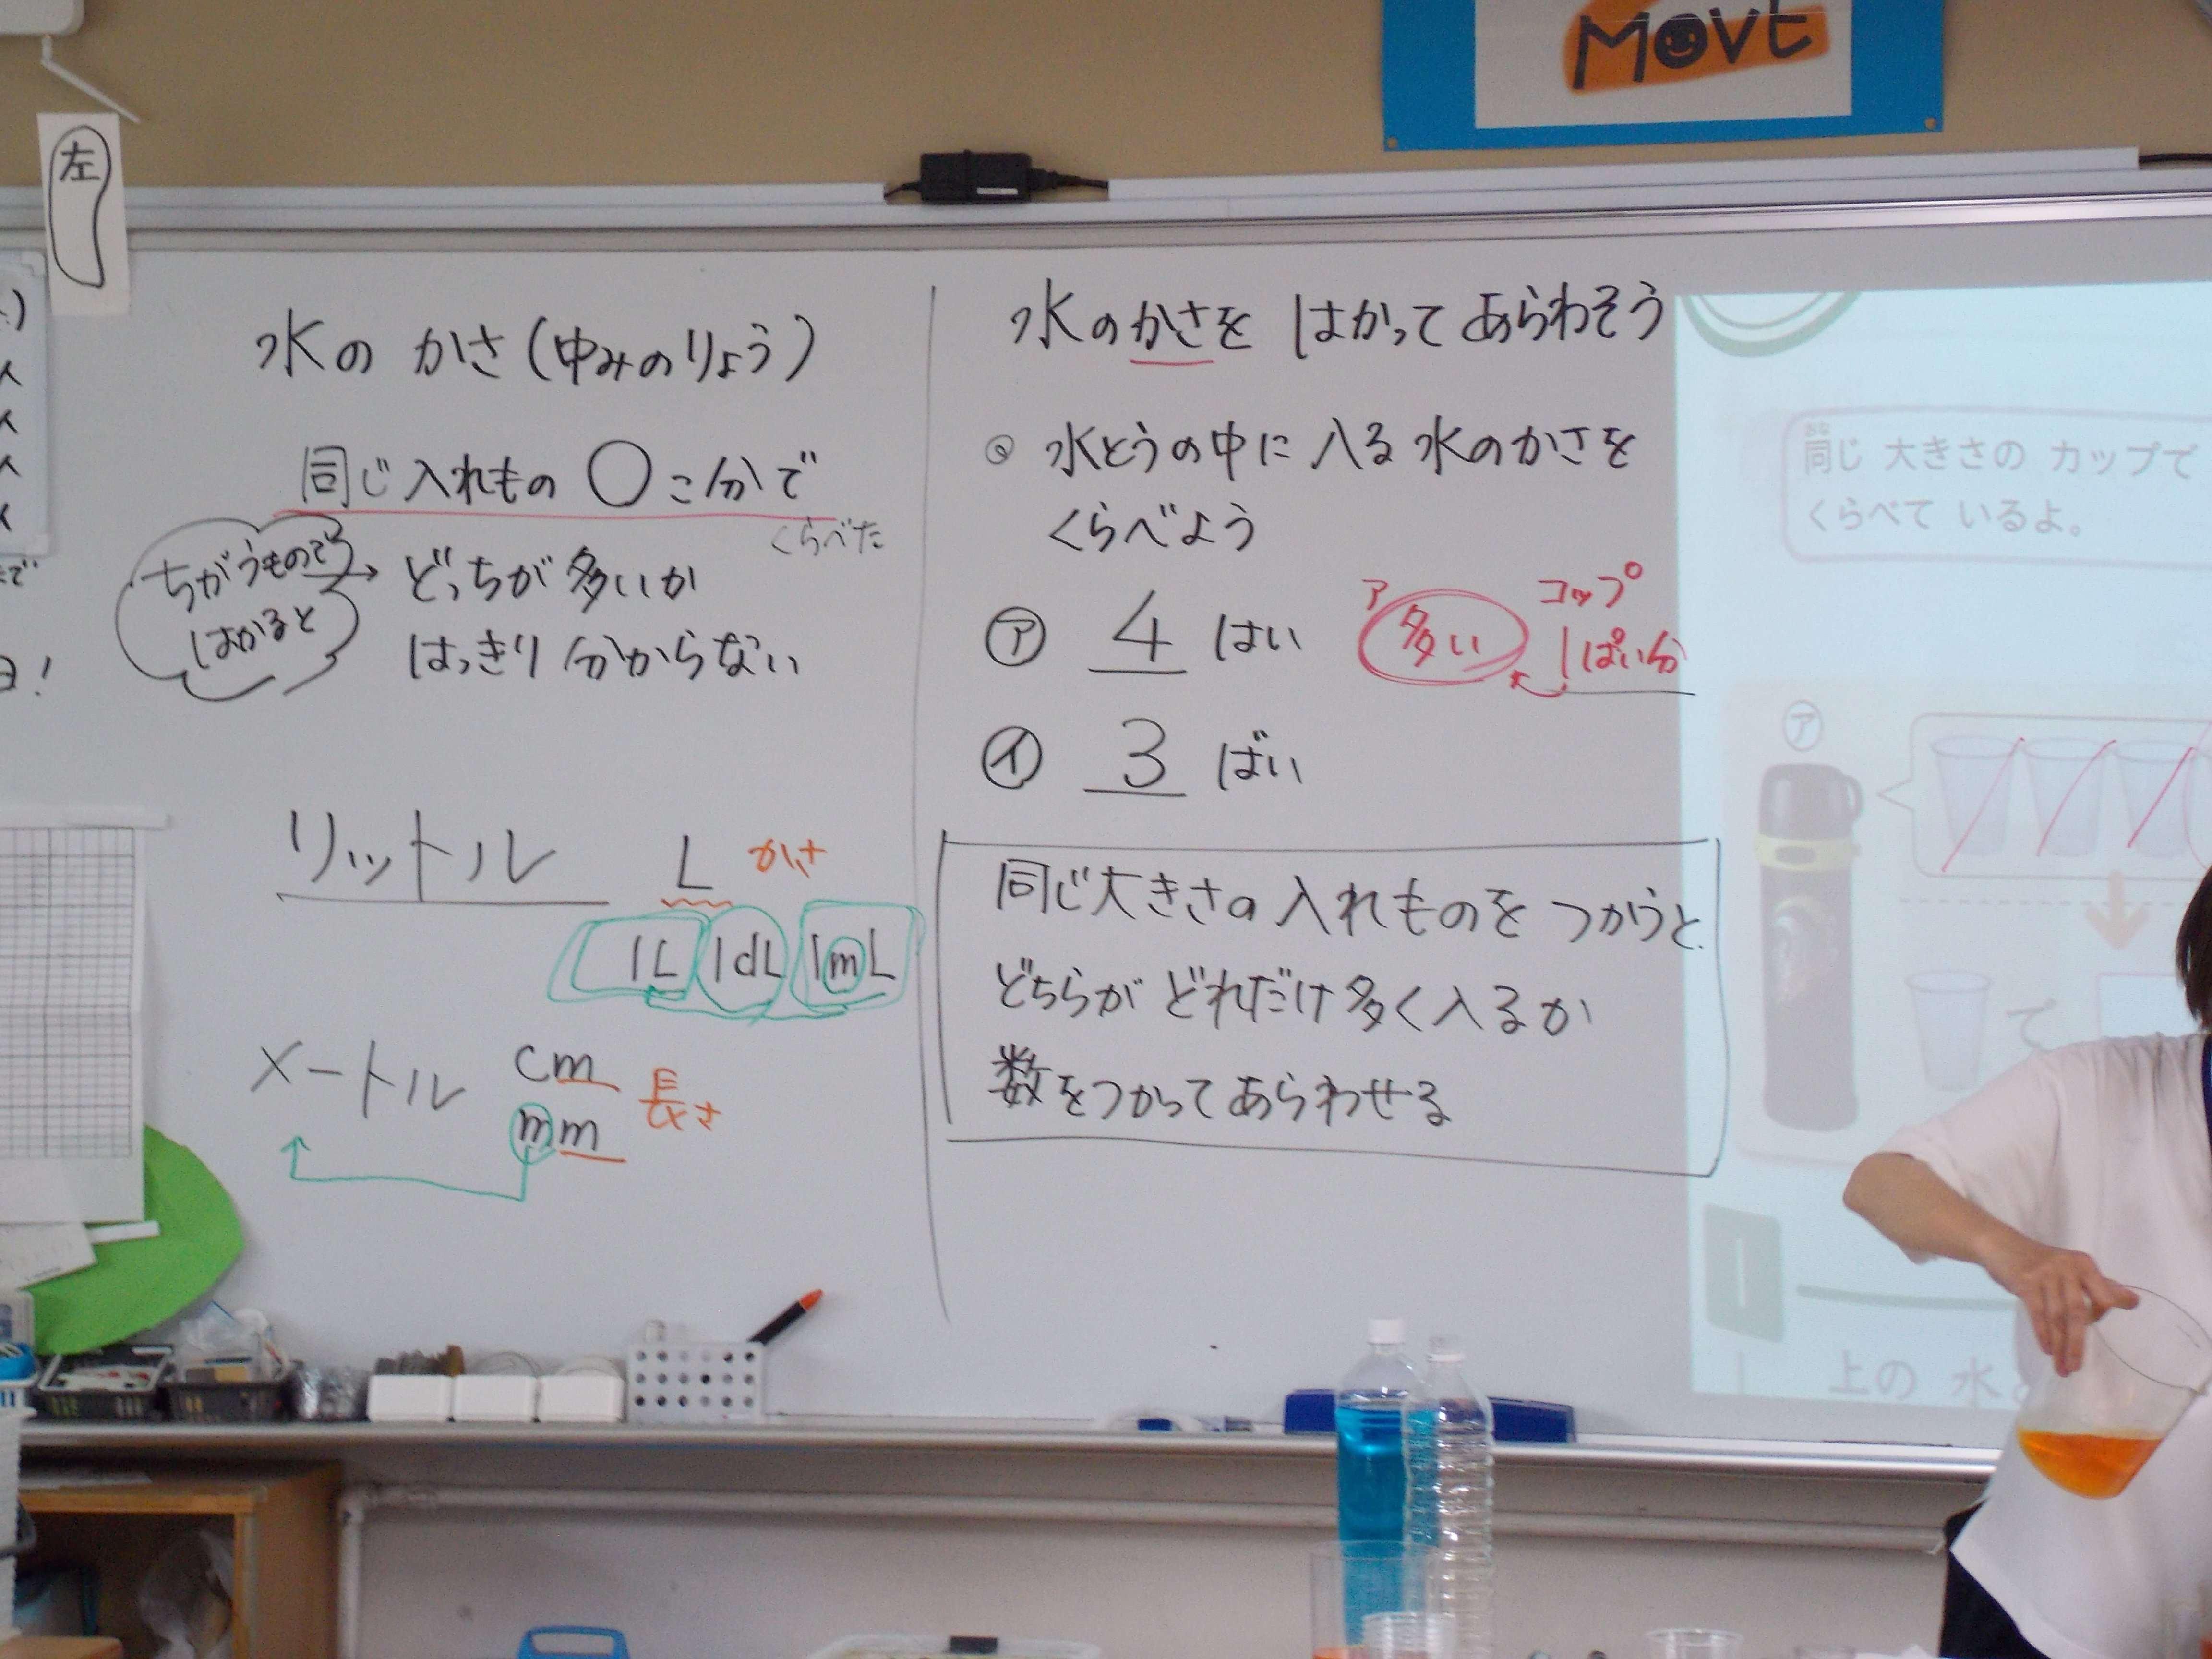 MOVE
左
水の かさ(中みのりょう)
同じ入れもの 〇こ分で
くらべた
ちがうもので
はかると
→ どっちが多いか
はっきり分からない
リットル L かさ
1L 1dL 1mL
メートル cm
mm
長さ
水のかさを はかって あらわそう
水とうの中に入る水のかさを
くらべよう
㋐ 4 はい
ア 多い
コップ
1ぱい分
㋑ 3 ばい
同じ大きさの入れものをつかうと
どちらが どれだけ多く入るか
数をつかってあらわせる
同じ 大きさの カップで
くらべて いるよ。
㋐
で
1
1 上の 水